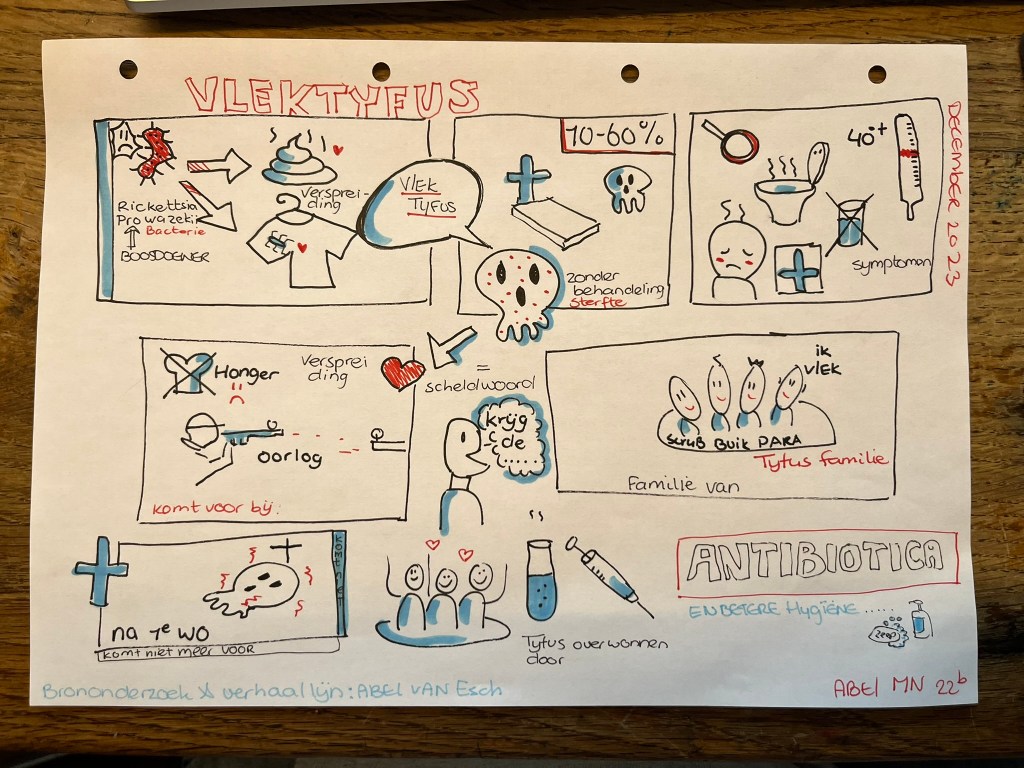 VLEKTYFUS
DECEMBER 2023
Rickettsia
Prowazeki
Bacterie
BOOSDOENER
VERSPREI-
DING
VLEK
TYFUS
10-60%
zonder
behandeling
sterfte
40°+
symptomen
Honger
VERSPREI
DING
oorlog
komt voor bij:
=
scheldwoord
krijg
de
......
ik
VLEK
SCRUB BUIK PARA
Tyfus familie
Familie van
KOMT NIET
na 1e WO
komt niet meer voor
Tyfus overwonnen
door
ANTIBIOTICA
EN BETERE Hygiëne .....
zeep
Brononderzoek & verhaallijn: ABEL VAN Esch
ABEL MN 22b